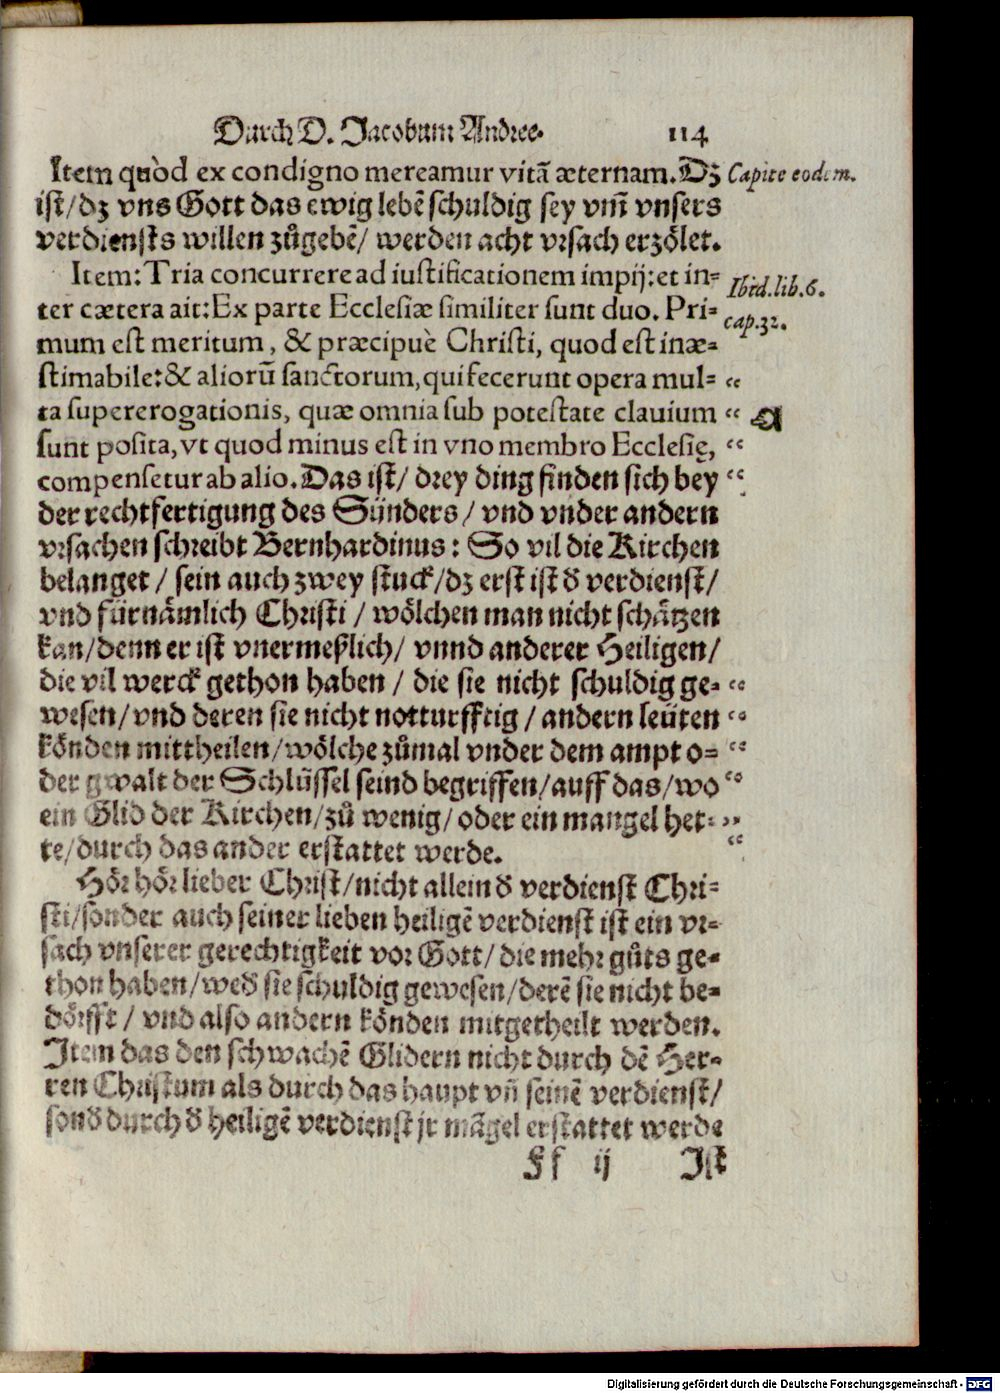 Durch D. Jacobum Andree. 114
Item quòd ex condigno mereamur vitã æternam. Dz
Capite eodem.
ist/dz vns Gott das ewig lebẽ schuldig sey vm̃ vnsers
verdiensts willen zůgebẽ/ werden acht vrsach erzölet.
Item: Tria concurrere ad iustificationem impij: et in-
Ibid. lib. 6.
ter cætera ait: Ex parte Ecclesiæ similiter sunt duo. Pri-
cap. 32.
mum est meritum, & præcipuè Christi, quod est inæ-
stimabile: & aliorũ sanctorum, qui fecerunt opera mul- “
ta supererogationis, quæ omnia sub potestate clauium “
sunt posita, vt quod minus est in vno membro Ecclesię, “
compensetur ab alio. Das ist/ drey ding finden sich bey “
der rechtfertigung des Sünders/ vnd vnder andern
vrsachen schreibt Bernhardinus: So vil die Kirchen
belanget/ sein auch zwey stuck/dz erst ist d̕ verdienst/
vnd fürnämlich Christi/ wölchen man nicht schätzen
kan/denn er ist vnermeßlich/ vnnd anderer Heiligen/
die vil werck gethon haben/ die sie nicht schuldig ge- “
wesen/vnd deren sie nicht notturfftig/ andern leüten “
könden mittheilen/wölche zůmal vnder dem ampt o- “
der gwalt der Schlüssel seind begriffen/auff das/wo “
ein Glid der Kirchen/zů wenig/ oder ein mangel het- “
te/durch das ander erstattet werde. “
Hör hör lieber Christ/nicht allein d̕ verdienst Chri-
sti/sonder auch seiner lieben heiligẽ verdienst ist ein vr-
sach vnserer gerechtigkeit vor Gott/ die mehr gůts ge-
thon haben/wed̕ sie schuldig gewesen/derẽ sie nicht be-
dörfft/ vnd also andern könden mitgetheilt werden.
Item das den schwachẽ Glidern nicht durch dẽ Her-
ren Christum als durch das haupt vñ seinẽ verdienst/
sond̕ durch d̕ heiligẽ verdienst jr mãgel erstattet werde
Ff ij Ist
Digitalisierung gefördert durch die Deutsche Forschungsgemeinschaft - DFG